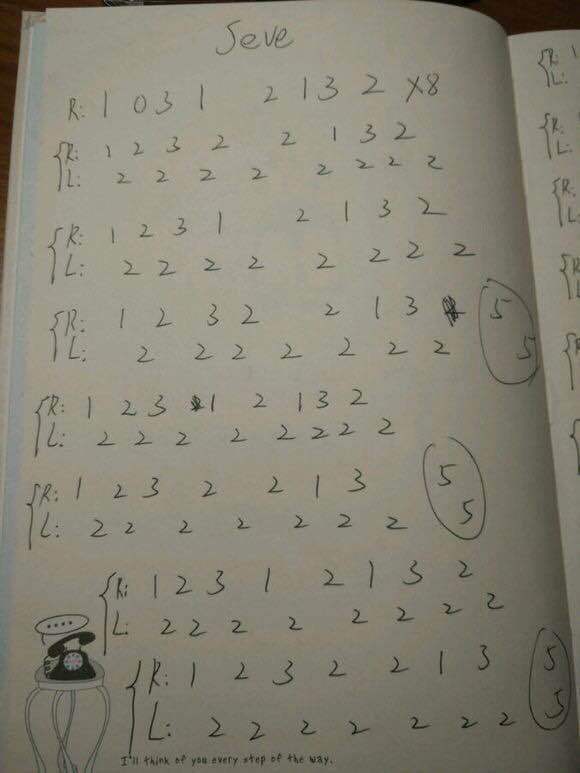 Seve
R: 1 0 3 1 2 1 3 2 ×8
R: 1 2 3 2 2 1 3 2
L: 2 2 2 2 2 2 2 2
R: 1 2 3 1 2 1 3 2
L: 2 2 2 2 2 2 2 2
R: 1 2 3 2 2 1 3 5
L: 2 2 2 2 2 2 2 5
R: 1 2 3 1 2 1 3 2
L: 2 2 2 2 2 2 2 2
R: 1 2 3 2 2 1 3 5
L: 2 2 2 2 2 2 2 5
R: 1 2 3 1 2 1 3 2
L: 2 2 2 2 2 2 2 2
R: 1 2 3 2 2 1 3 5
L: 2 2 2 2 2 2 2 5
I'll think of you every step of the way.
R: 1
L:
R: 1
L:
R:
L:
R
L
R